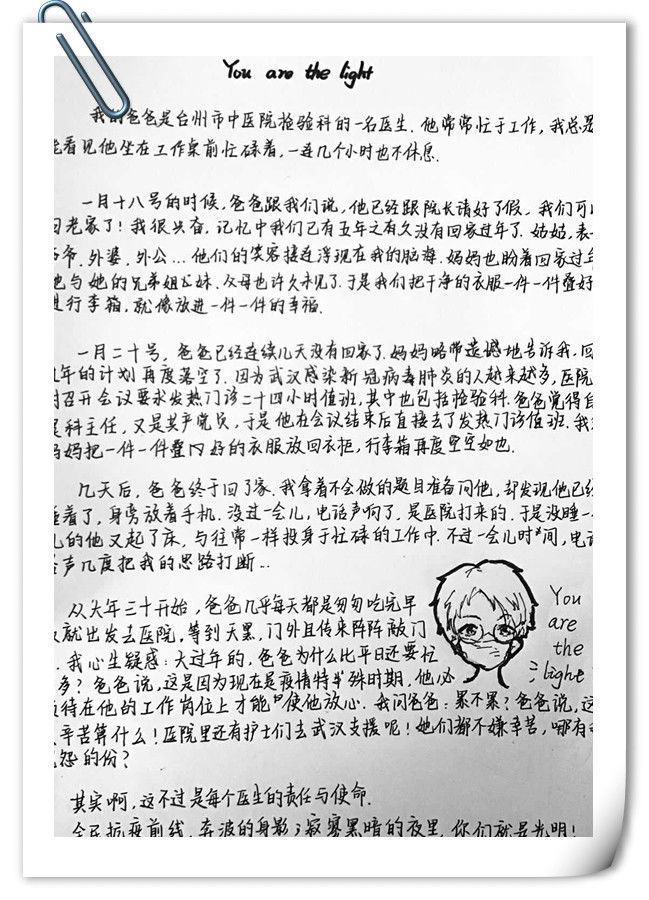 You are the light
我的爸爸是台州市中医院检验科的一名医生.他常常忙于工作,我总是
能看见他坐在工作桌前忙碌着,一连几个小时也不休息.
一月十八号的时候,爸爸跟我们说,他已经跟院长请好了假,我们可以
回老家了!我很兴奋,记忆中我们已有五年之有久没有回家过年了.姑姑,表
爷爷,外婆,外公…他们的笑容接连浮现在我的脑海.妈妈也盼着回家过年
她与她的兄弟姐妹、父母也许久未见了.于是我们把干净的衣服一件一件叠好
进行李箱,就像放进一件一件的幸福.
一月二十号,爸爸已经连续几天没有回家了.妈妈略带遗憾地告诉我,回
过年的计划再度落空了.因为武汉感染新冠病毒肺炎的人越来越多,医院
时召开会议要求发热门诊二十四小时值班,其中也包括检验科.爸爸觉得自
是科主任,又是共产党员,于是他在会议结束后直接去了发热门诊值班.我
妈妈把一件一件叠好的衣服放回衣柜,行李箱再度空空如也.
几天后,爸爸终于回了家.我拿着不会做的题目准备问他,却发现他已经
睡着了,身旁放着手机.没过一会儿,电话声响了.是医院打来的.于是没睡一
儿的他又起了床,与往常一样投身于忙碌的工作中.不过一会儿时间,电话
铃声几度把我的思路打断…
从大年三十开始,爸爸几乎每天都是匆匆吃完早
就出发去医院,等到天黑,门外且传来阵阵敲门
.我心生疑惑:大过年的,爸爸为什么比平日还要忙
多?爸爸说,这是因为现在是疫情特殊时期,他必
须待在他的工作岗位上才能使他放心.我问爸爸:累不累?爸爸说,这
辛苦算什么!医院里还有护士们去武汉支援呢!她们都不嫌辛苦,哪有我
怨的份?
You
are
the
light
其实啊,这不过是每个医生的责任与使命.
全民抗疫前线,奔波的身影;寂寥黑暗的夜里,你们就是光明!